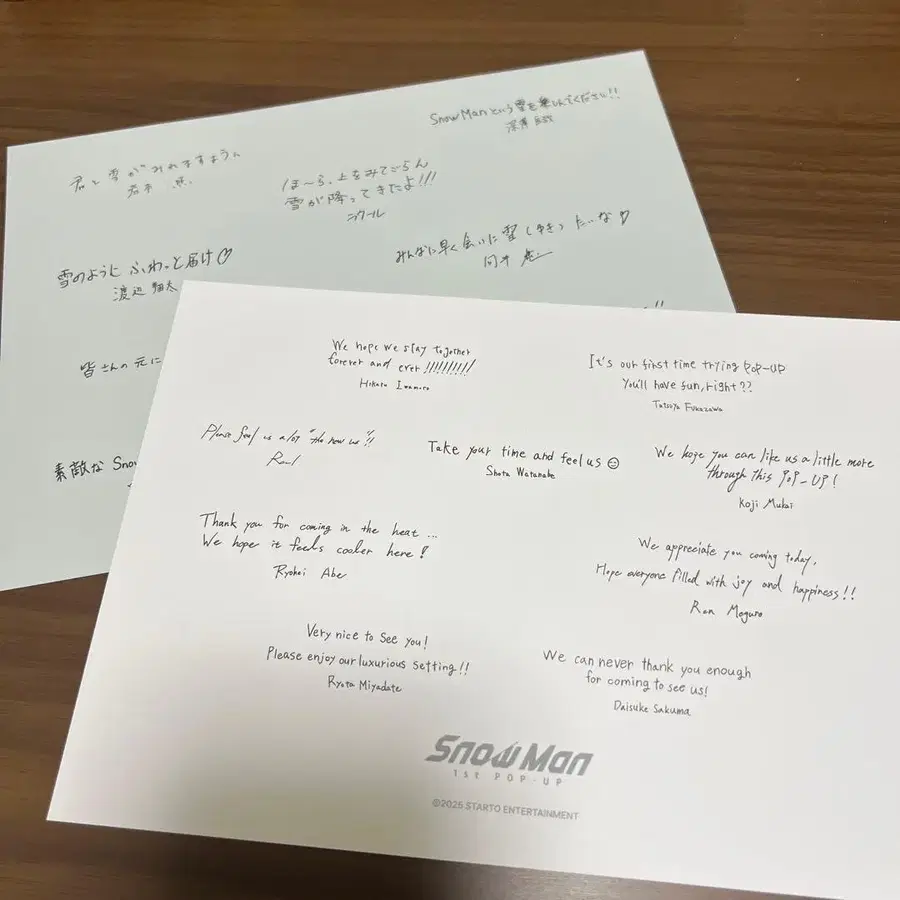 SnowManという雪を楽しんでください!!
深澤 辰哉
君と雪がみれますように
岩本 照
ほ〜ら、上をみてごらん
雪が降ってきたよ!!!
ラウール
みんなに早く会いに雪(ゆき)たいな♡
向井 康二
雪のように ふわっと届け♡
渡辺 翔太
皆さんの元に
素敵な Snow
We hope we stay together
forever and ever !!!!!!!!!!
Hikaru Iwamoto
It's our first time trying POP-UP
You'll have fun, right??
Tatsuya Fukazawa
Please feel us a lot "the new us"!!
Raul
Take your time and feel us ☺
Shota Watanabe
We hope you can like us a little more
through this POP-UP!
Koji Mukai
Thank you for coming in the heat ...
We hope it feels cooler here!
Ryohei Abe
We appreciate you coming today,
Hope everyone filled with joy and happiness!!
Ren Meguro
Very nice to see you!
Please enjoy our luxurious setting!!
Ryota Miyadate
We can never thank you enough
for coming to see us!
Daisuke Sakuma
Snow Man
1st POP-UP
©2025 STARTO ENTERTAINMENT